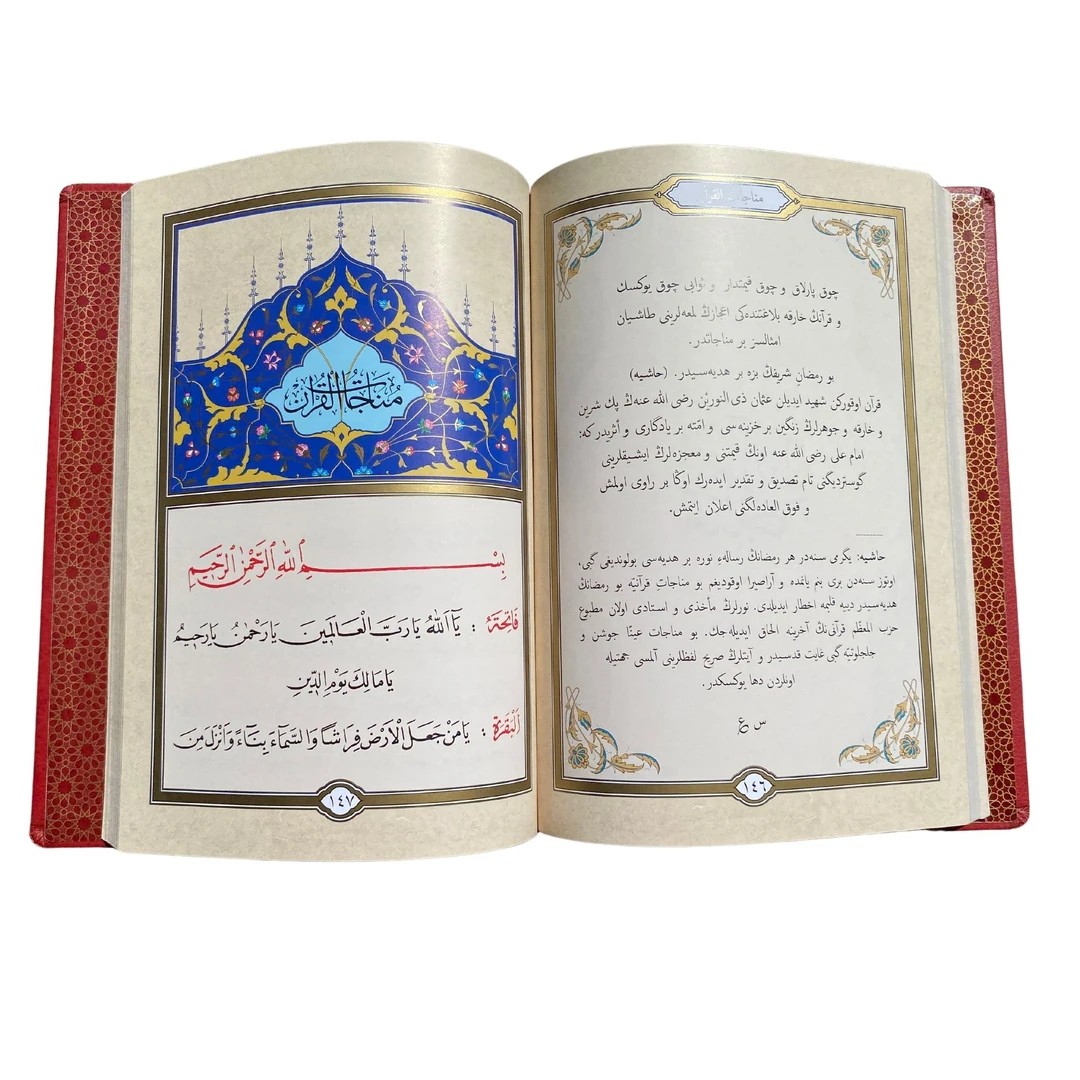 مناجات القرآن
چوق پارلاق و چوق قیمتدار و ثوابی چوق یوكسك
و قرآنڭ خارقه بلاغتنده‌كی اعجازڭ لمعه‌لرینی طاشییان
امثالسز بر مناجاتدر.
بو رمضان شریفڭ بزه بر هدیه‌سیدر. (حاشیه)
قرآن اوقوركن شهید ایدیلن عثمان ذی النورین رضی الله عنه‌ڭ پك شرین
و خارقه و جوهرلرڭ زنگین بر خزینه‌سی و امّته بر یادگاری و أثریدر كه:
امام علی رضی الله عنه اونڭ قیمتنی و معجزه‌لرڭ ایشیقلرینی
گوستردیگنی تام تصدیق و تقدیر ایده‌رك اوڭا بر راوی اولمش
و فوق العاده‌لگنی اعلان ایتمش.
حاشیه: یگرمی سنه‌در هر رمضانڭ رساله‌ٔ نوره بر هدیه‌سی بولوندیغی گبی،
اوتوز سنه‌دن بری بنم یانمده و آراصیرا اوقودیغم بو مناجات قرآنیّه بو رمضانڭ
هدیه‌سیدر دییه قلبمه اخطار ایدیلدی. نورلرڭ مأخذی و استادی اولان مطبوع
حزب المعظّم قرآنی‌نڭ آخرینه الحاق ایدیله‌جك. بو مناجات عینًا جوشن و
جلجلوتیّه گبی غایت قدسیدر و آیتلرڭ صریح لفظلرینی آلمسی جهتیله
اونلردن دها یوكسكدر.
س ع
١٤٦
مُنَاجَاتُ الْقُرْاٰنِ
بِسْمِ اللّٰهِ الرَّحْمٰنِ الرَّحٖيمِ
فَاتِحَةُ : يَٓا اَللّٰهُ يَا رَبَّ الْعَالَمٖينَ يَا رَحْمٰنُ يَا رَحٖيمُ
يَا مَالِكَ يَوْمِ الدّٖينِ
اَلْبَقَرَةِ : يَا مَنْ جَعَلَ الْاَرْضَ فِرَاشًا وَالسَّمَٓاءَ بِنَٓاءً وَاَنْزَلَ مِنَ
١٤٧